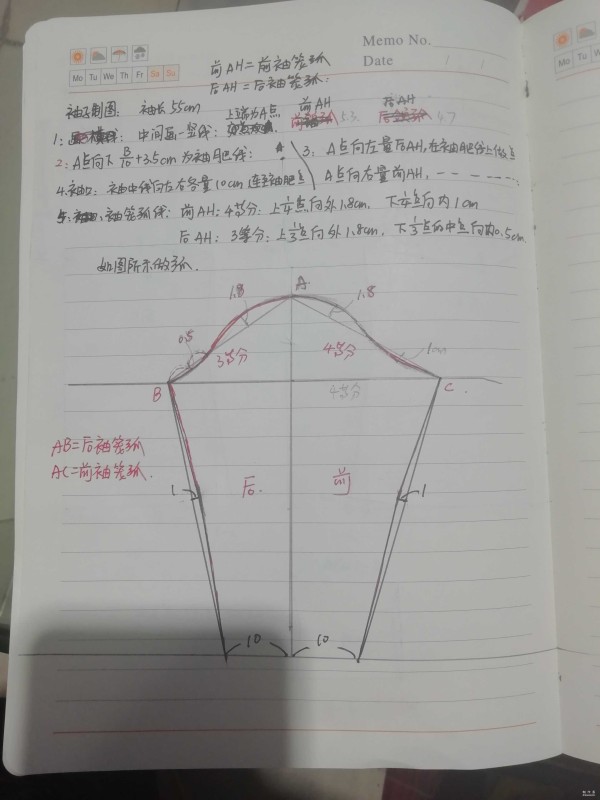 Memo No.
Date
Mo Tu We Th Fr Sa Su
前AH=前袖笼弧
后AH=后袖笼弧:
袖子制图: 袖长55cm 上端为A点 前AH 后AH
1: 中间画一竖线: 53 47
2: A点向下 B/10 +3.5cm 为袖肥线:
3: A点向左量后AH,在袖肥线上做点
A点向右量前AH, — — — — — —
4.袖口: 袖中线向左右各量10cm连至袖肥点
5: 袖笼弧线: 前AH: 4等分: 上1/4点向外1.8cm. 下1/4点向内1cm
后AH: 3等分: 上1/3点向外1.8cm, 下1/3点的中点向内0.5cm
如图所示做弧.
A
1.8 1.8
0.5 3等分 4等分 1cm
B 4等分 C
AB=后袖笼弧
AC=前袖笼弧.
1 后. 前 1
10 10